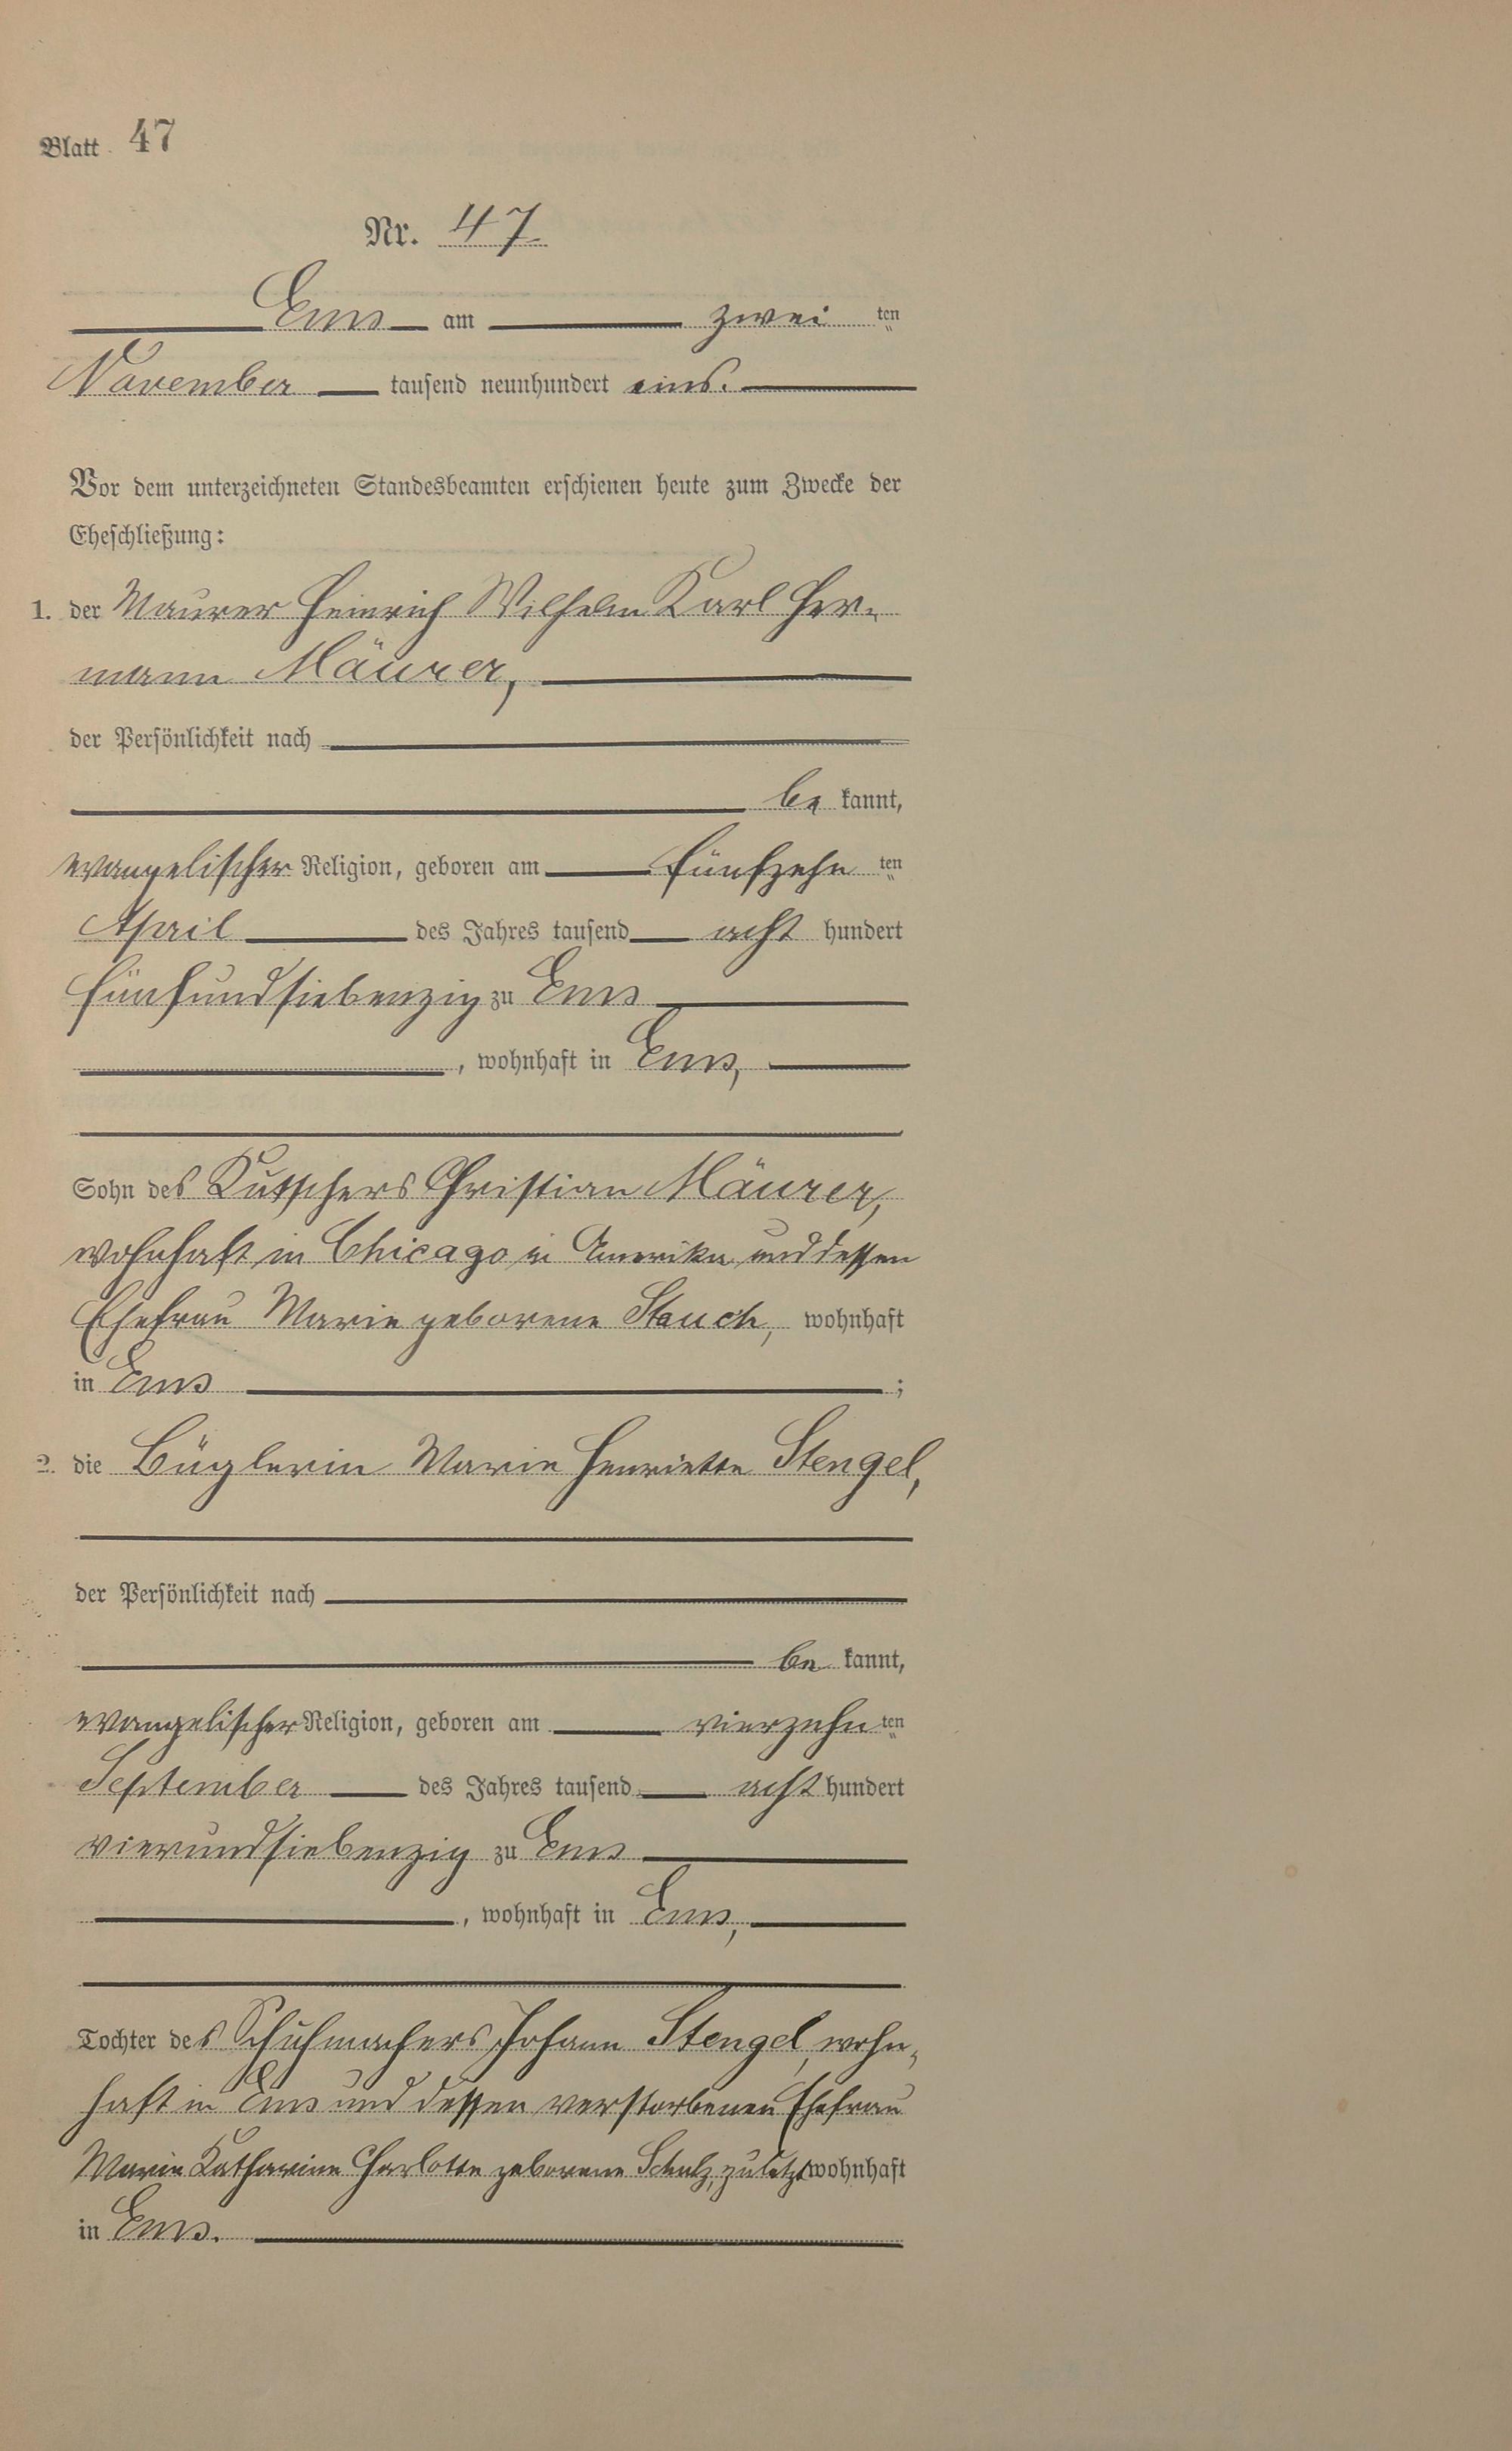 Blatt 47
Nr. 47
Ems am zwei ten
November tausend neunhundert eins.
Vor dem unterzeichneten Standesbeamten erschienen heute zum Zwecke der
Eheschließung:
1. der Maurer Heinrich Wilhelm Karl Her-
mann Mäurer,
der Persönlichkeit nach
be kannt,
evangelischer Religion, geboren am fünfzehn ten
April des Jahres tausend acht hundert
fünfundsiebenzig zu Ems
, wohnhaft in Ems,
Sohn des Kutschers Christian Mäurer,
wohnhaft in Chicago in Amerika und dessen
Ehefrau Marie geborene Stauch, wohnhaft
in Ems ;
2. die Büglerin Marie Henriette Stengel,
der Persönlichkeit nach
be kannt,
evangelischer Religion, geboren am vierzehn ten
September des Jahres tausend acht hundert
vierundsiebenzig zu Ems
, wohnhaft in Ems,
Tochter des Schuhmachers Johann Stengel, wohn-
haft in Ems und dessen verstorbenen Ehefrau
Marie Katharine Charlotte geborene Schulz, zuletzt wohnhaft
in Ems.